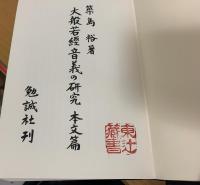 築島 裕 著
大般若經音義の研究 本文篇
勉誠社刊
東辻
藏書